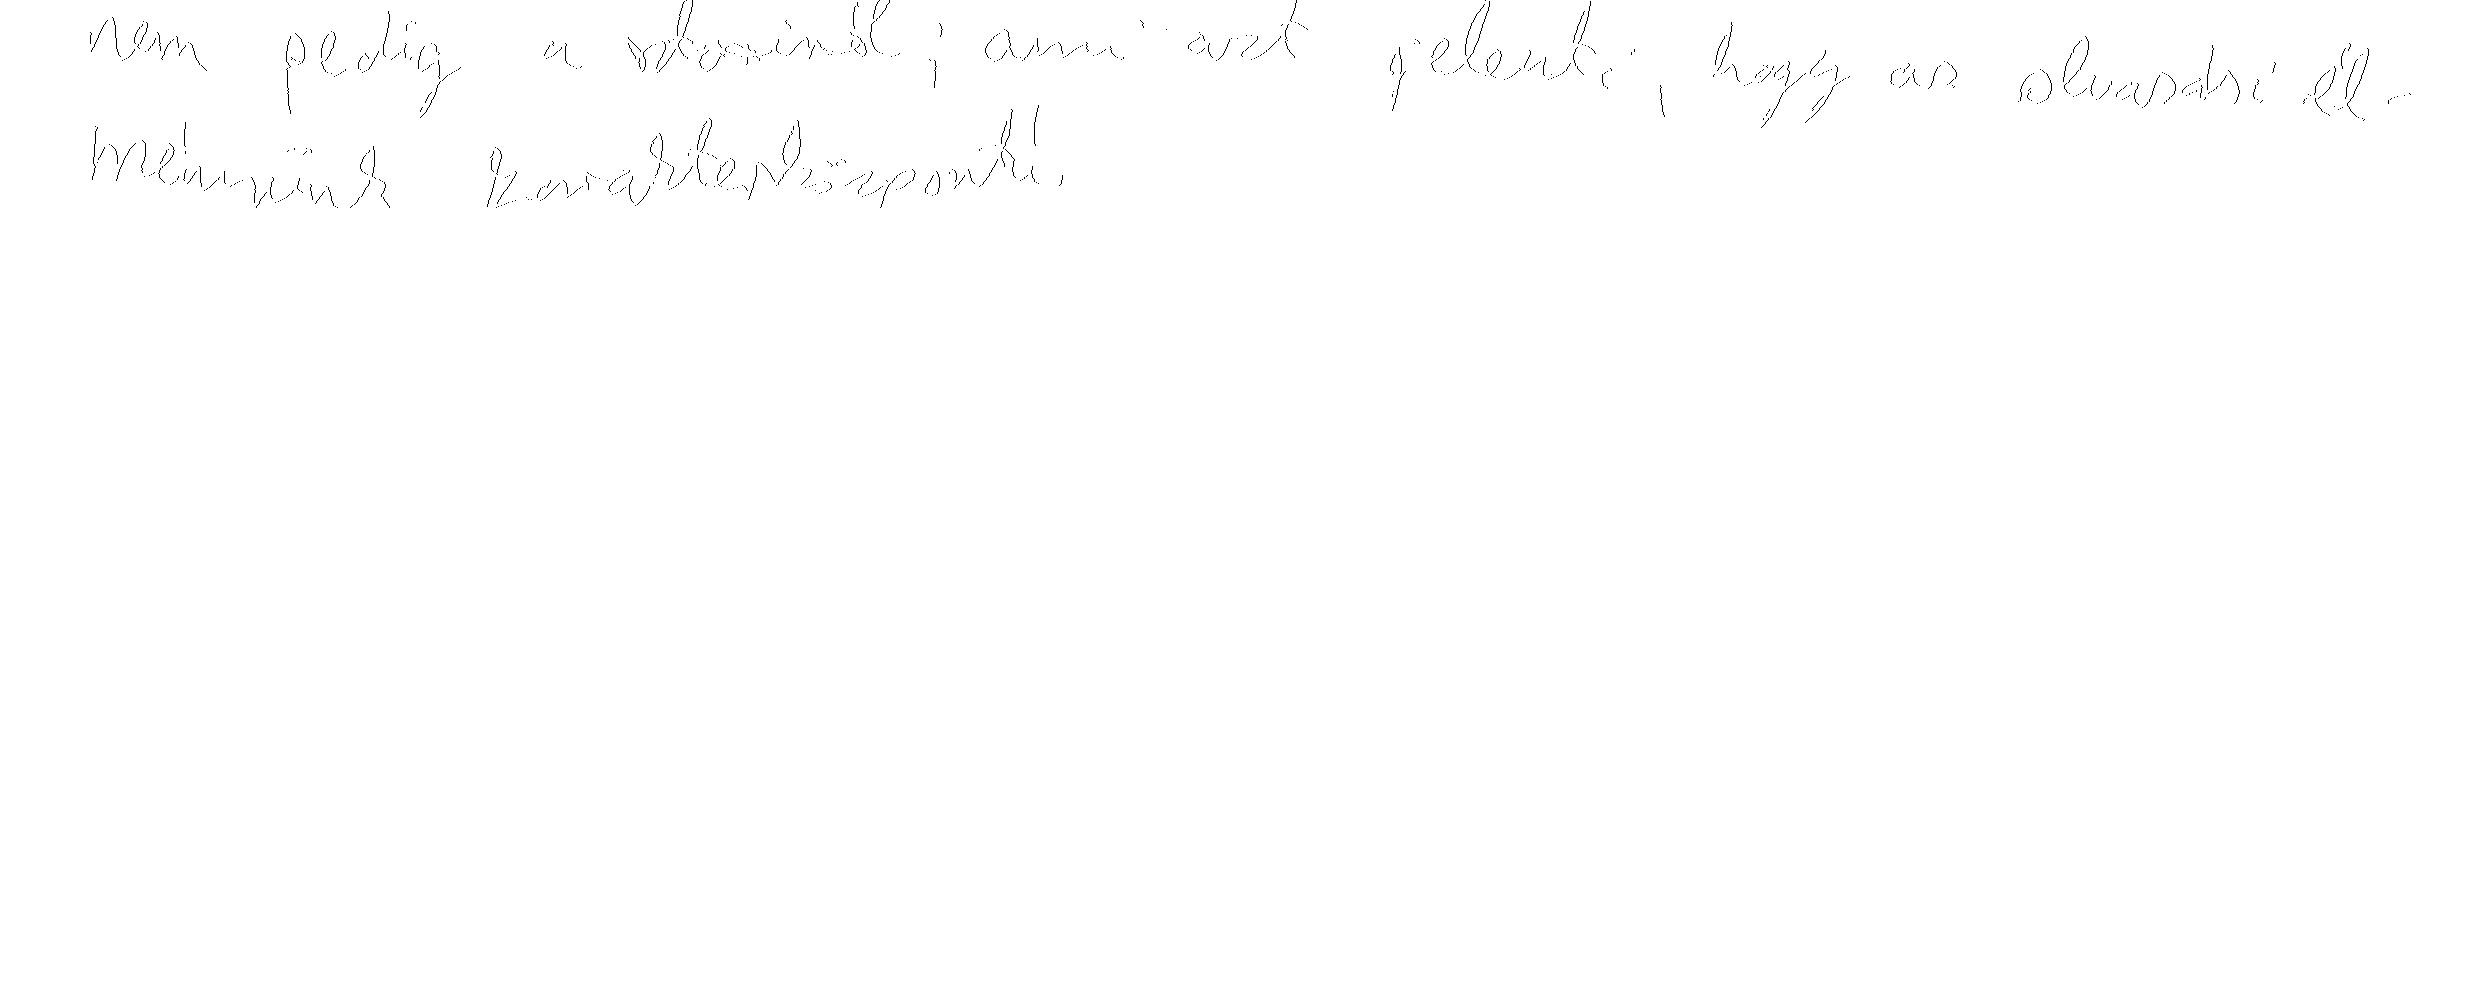 nem pedig a sztorinál, ami azt jelenti, hogy az olvasási él-
ményünk karakterközpontú.